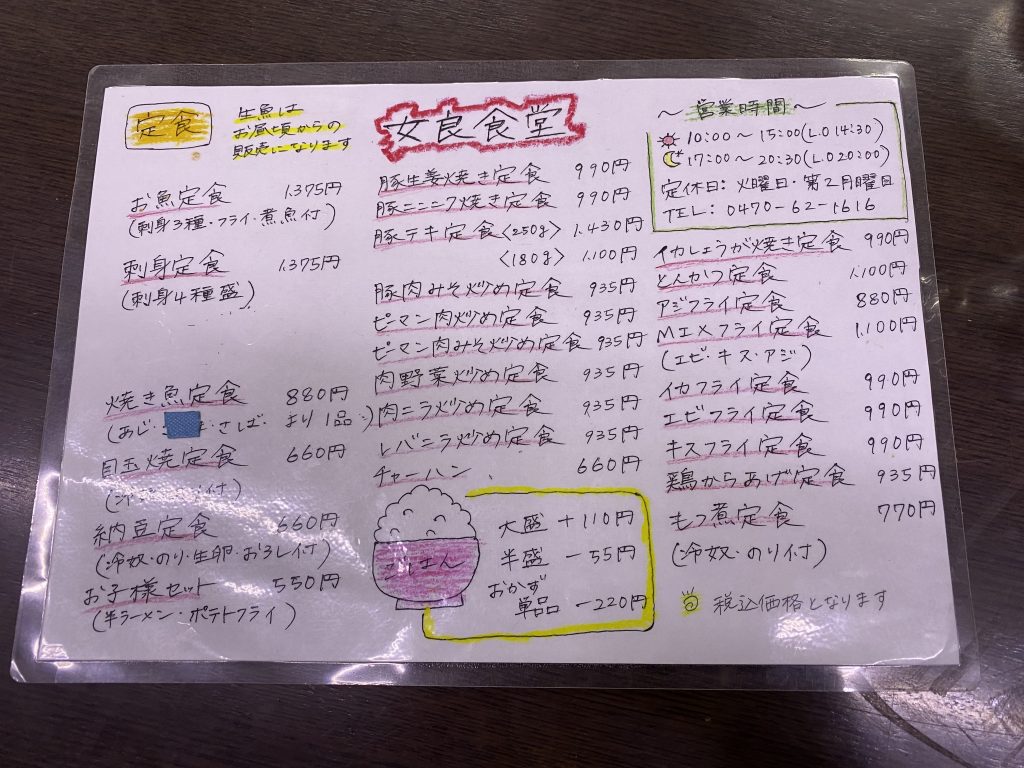 定食
生魚は
お昼頃からの
販売になります
お魚定食 1.375円
(刺身3種・フライ・煮魚付)
刺身定食 1.375円
(刺身4種盛)
焼き魚定食 880円
(あじ・さば・より1品)
目玉焼定食 660円
付)
納豆定食 660円
(冷奴・のり・生卵・おろし付)
お子様セット 550円
(半ラーメン・ポテトフライ)
女良食堂
豚生姜焼き定食 990円
豚ニンニク焼き定食 990円
豚テキ定食〈250g〉 1.430円
〈180g〉 1.100円
豚肉みそ炒め定食 935円
ピーマン肉炒め定食 935円
ピーマン肉みそ炒め定食 935円
肉野菜炒め定食 935円
肉ニラ炒め定食 935円
レバニラ炒め定食 935円
チャーハン 660円
ごはん
大盛 +110円
半盛 -55円
おかず
単品 -220円
〜営業時間〜
10:00〜15:00(L.O 14:30)
17:00〜20:30(L.O 20:00)
定休日:火曜日・第2月曜日
TEL: 0470-62-1616
イカしょうが焼き定食 990円
とんかつ定食 1.100円
アジフライ定食 880円
MIXフライ定食 1.100円
(エビ・キス・アジ)
イカフライ定食 990円
エビフライ定食 990円
キスフライ定食 990円
鶏からあげ定食 935円
もつ煮定食 770円
(冷奴・のり付)
税込価格となります